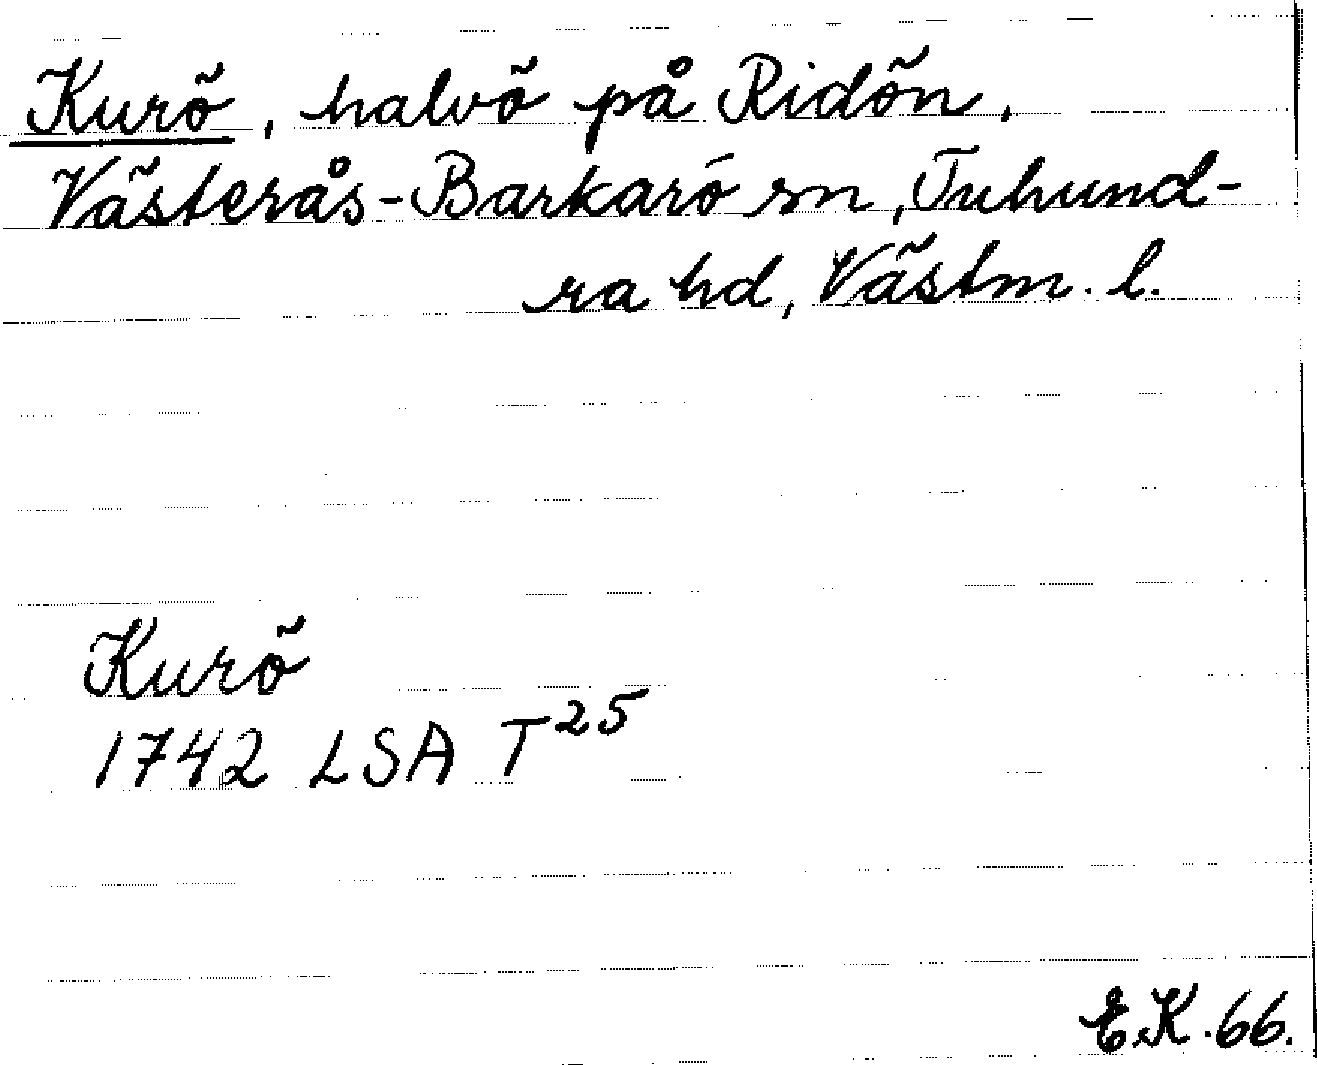 Kurö, halvö på Ridön,
Västerås-Barkarö sn, Tuhund-
ra hd, Västm. l.
Kurö
1742 LSA T25
E.K. 66.